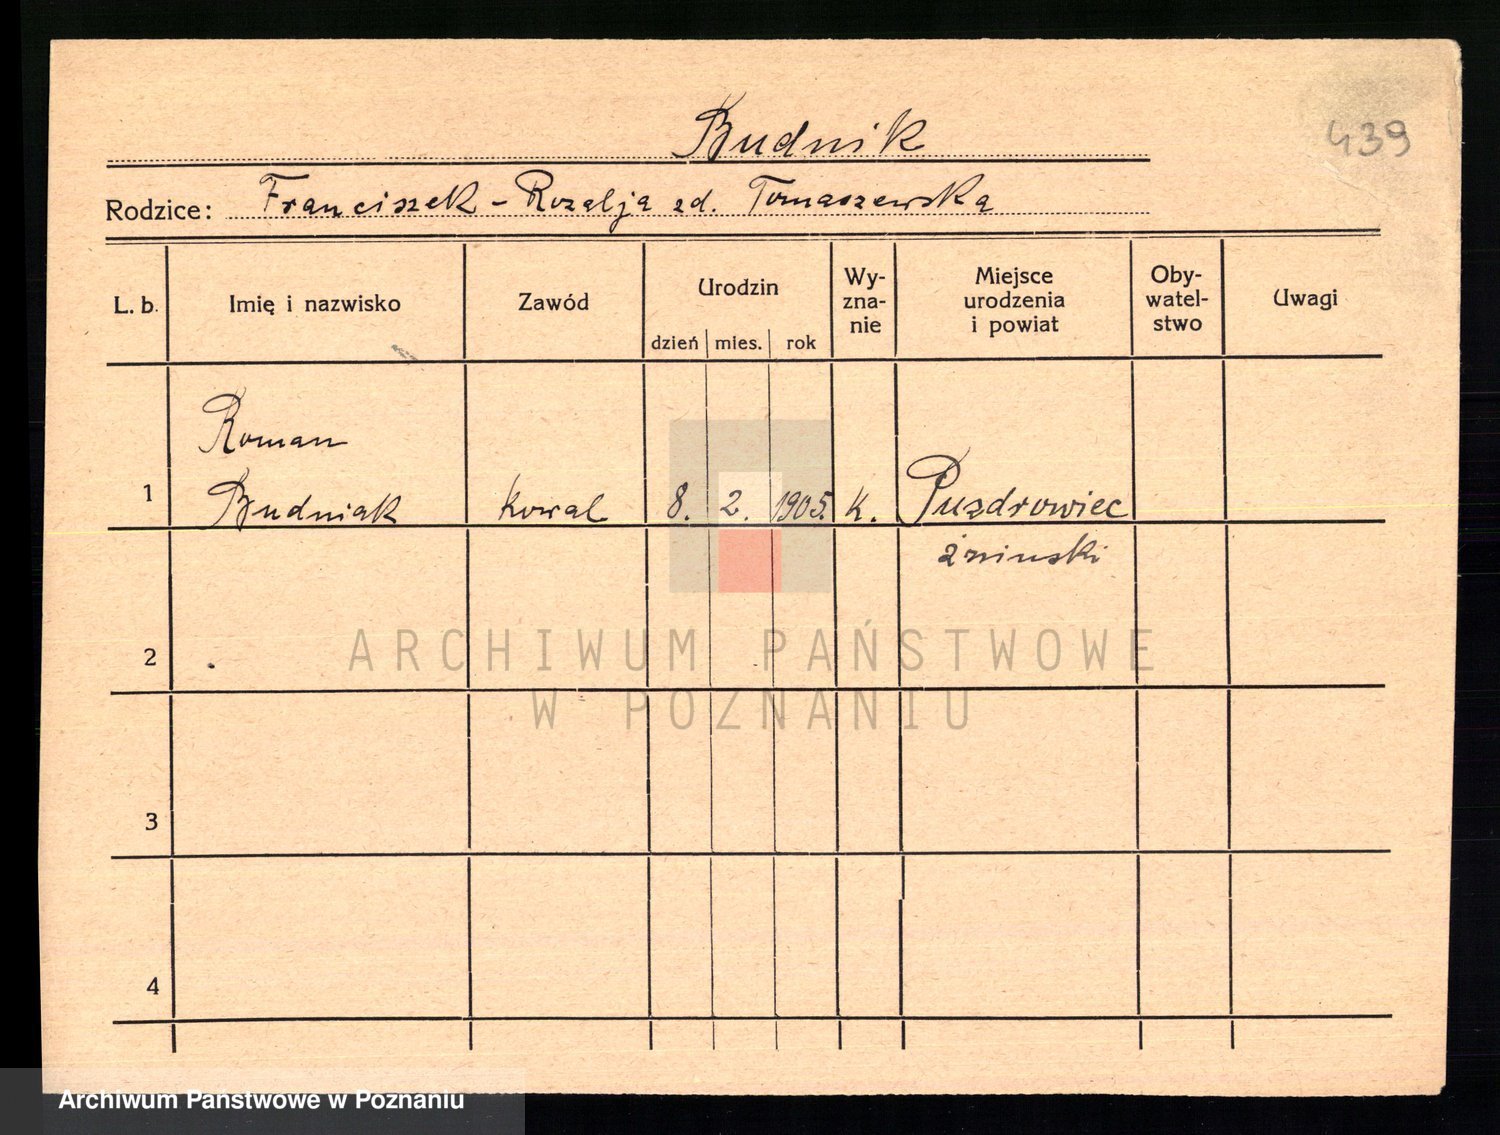 Budnik
439
Rodzice: Franciszek - Rozalja zd. Tomaszewska
L. b. Imię i nazwisko Zawód Urodzin dzień mies. rok Wy-zna-nie Miejsce urodzenia i powiat Oby-watel-stwo Uwagi
Roman
1 Budniak kowal 8. 2. 1905. K. Puzdrowiec
żninski
2
ARCHIWUM PAŃSTWOWE
W POZNANIU
3
4
Archiwum Państwowe w Poznaniu